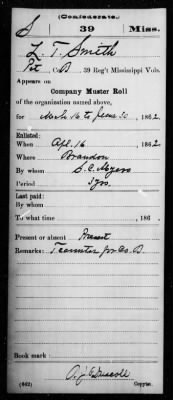 (Confederate.)
S 39 Miss.
L. T. Smith
Pvt, Co. B, 39 Reg't Mississippi Vols.
Appears on
Company Muster Roll
of the organization named above,
for Mch 16 to June 30, 1862.
Enlisted:
When Apl. 16, 1862.
Where Brandon
By whom S. C. Myers
Period 3 yrs.
Last paid:
By whom
To what time , 186 .
Present or absent Present
Remarks: Teamster for Co. B.
Book mark:
(642) Copyist.